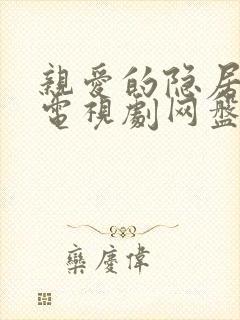 親愛的隐居
電視劇网盤
欒慶偉